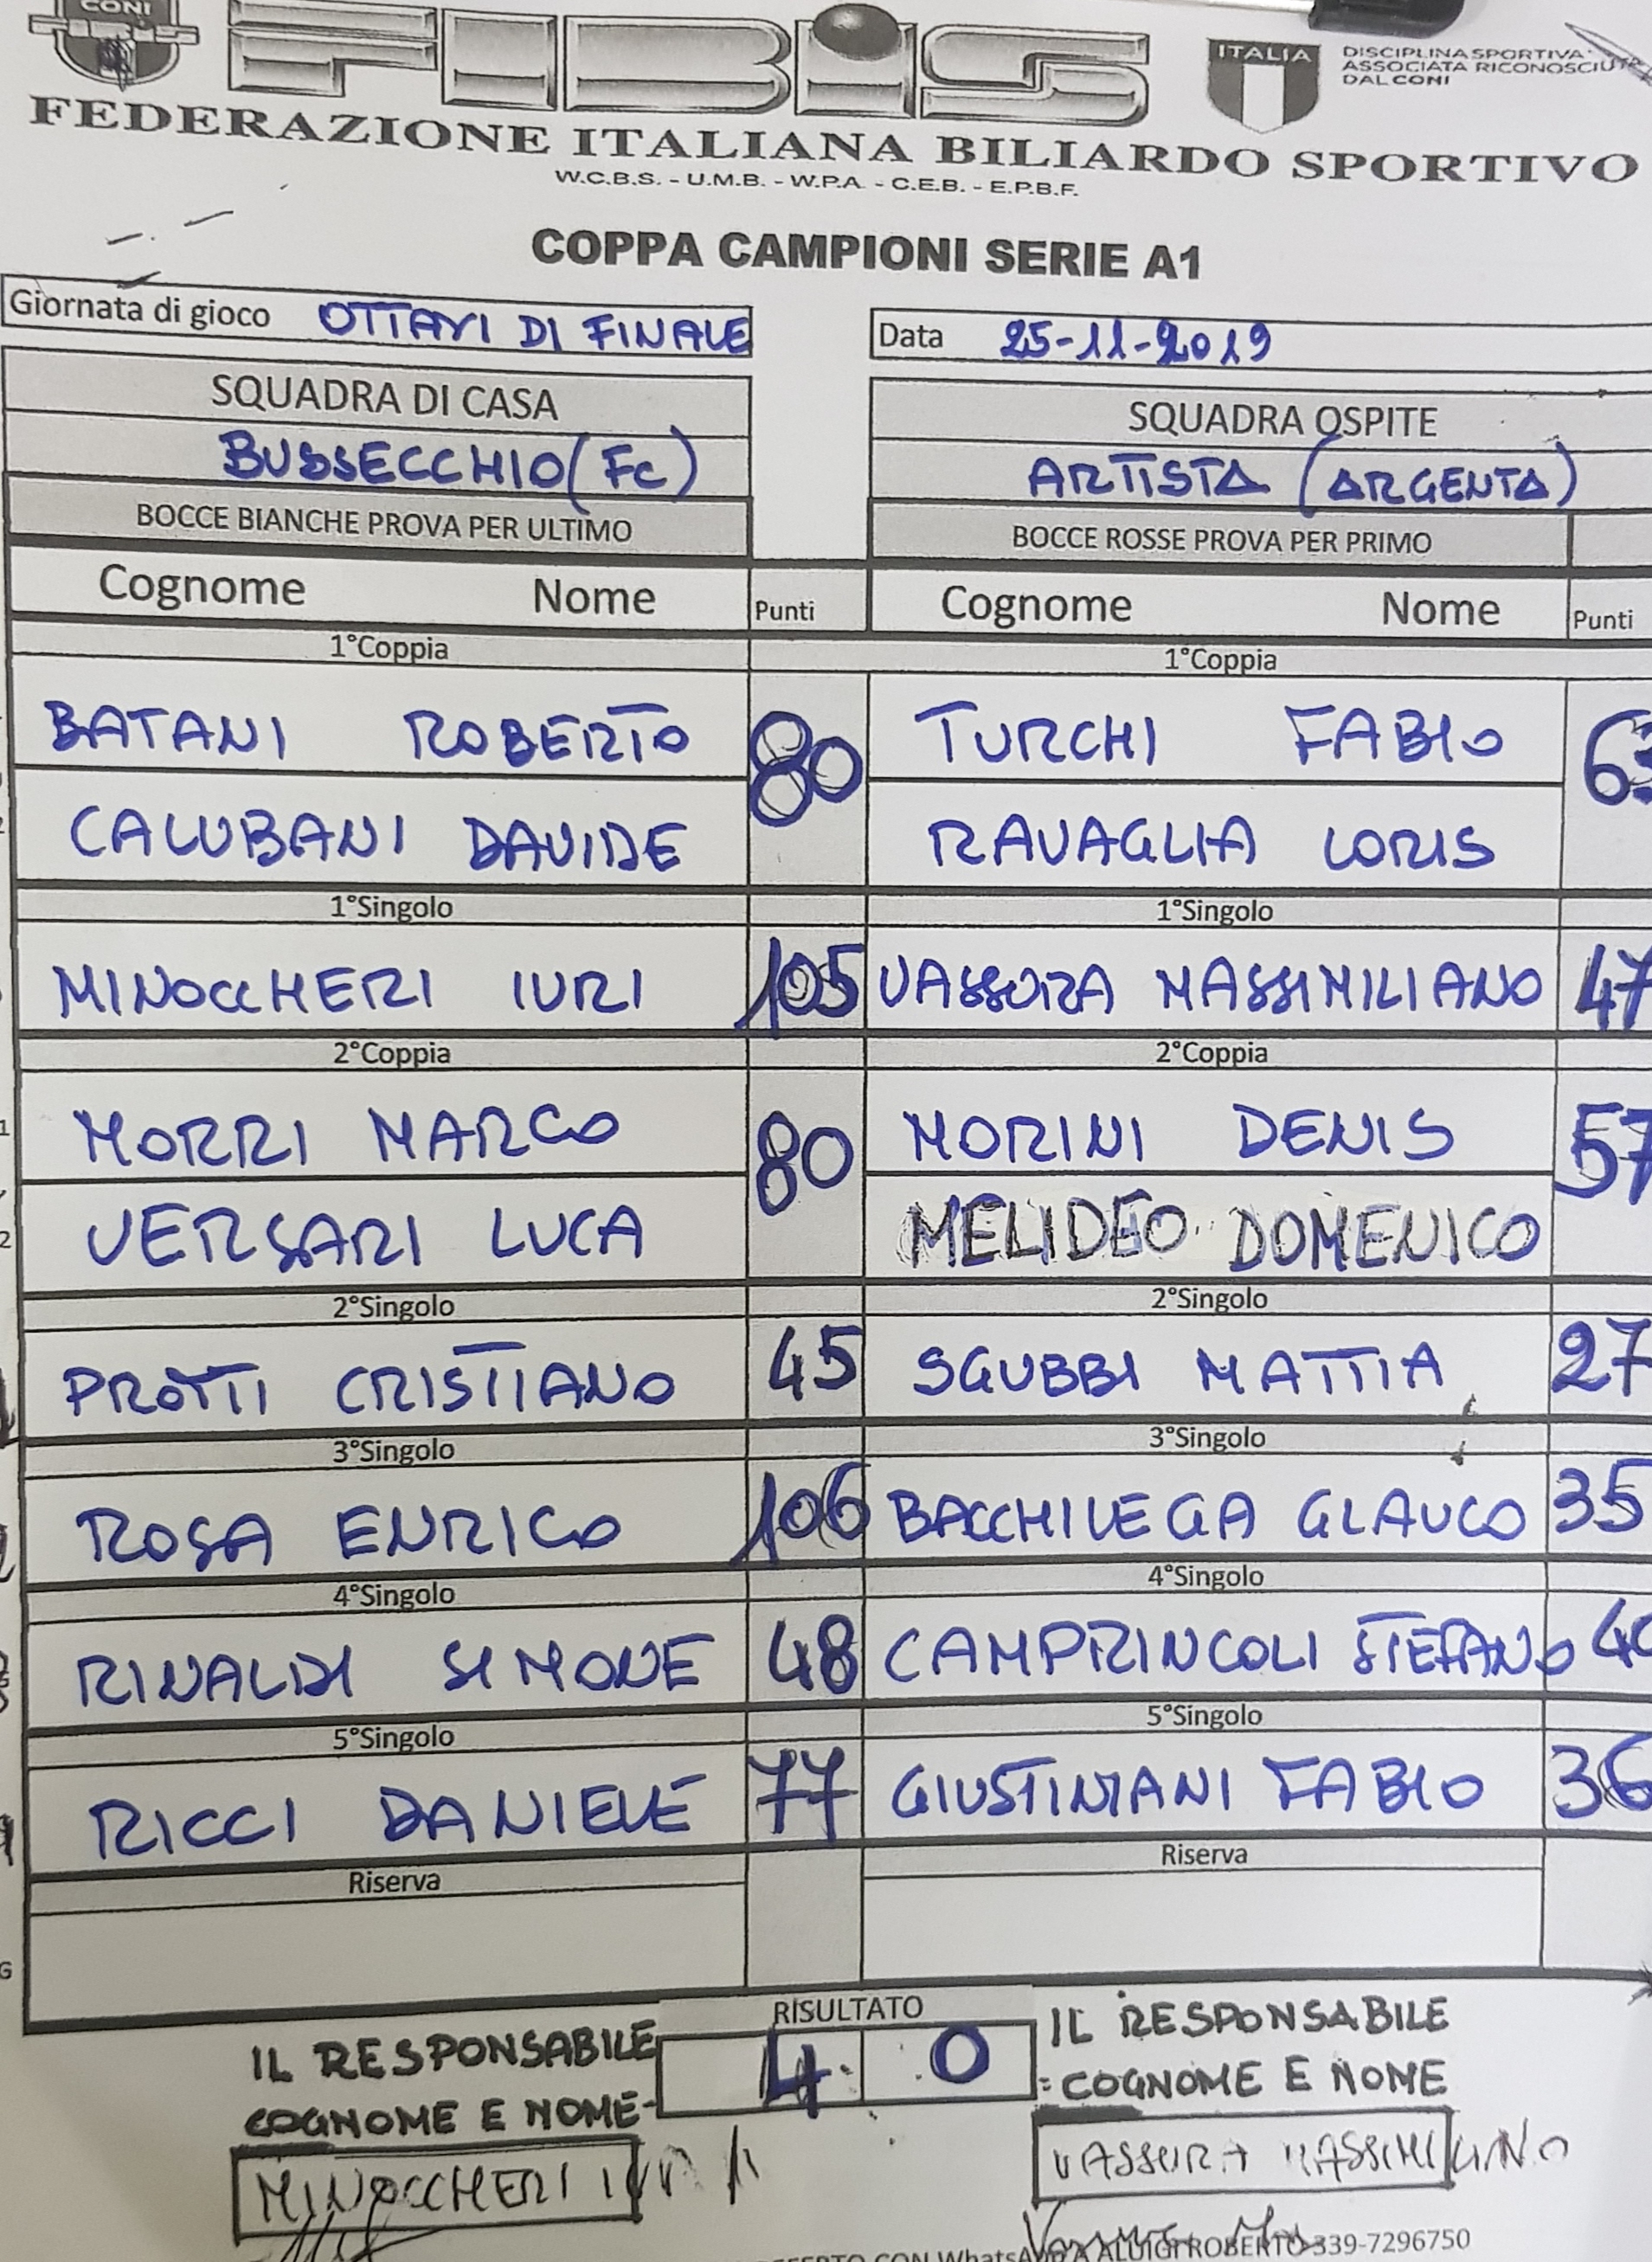 CONI
FIBiS
ITALIA
DISCIPLINA SPORTIVA
ASSOCIATA RICONOSCIUTA
DAL CONI
FEDERAZIONE ITALIANA BILIARDO SPORTIVO
W.C.B.S. - U.M.B. - W.P.A. - C.E.B. - E.P.B.F.
COPPA CAMPIONI SERIE A1
Giornata di gioco OTTAVI DI FINALE Data 25-11-2019
SQUADRA DI CASA SQUADRA OSPITE
BUSSECCHIO (FC) ARTISTA (ARGENTA)
BOCCE BIANCHE PROVA PER ULTIMO BOCCE ROSSE PROVA PER PRIMO
Cognome Nome Punti Cognome Nome Punti
1°Coppia 1°Coppia
BATANI ROBERTO 80 TURCHI FABIO 63
CALUBANI DAVIDE RAVAGLIA LORIS
1°Singolo 1°Singolo
MINOCCHERI IURI 105 VASSURA MASSIMILIANO 47
2°Coppia 2°Coppia
MORRI MARCO 80 MORINI DENIS 57
VERSARI LUCA MELIDEO DOMENICO
2°Singolo 2°Singolo
PROTTI CRISTIANO 45 SGUBBI MATTIA 27
3°Singolo 3°Singolo
ROSA ENRICO 106 BACCHILEGA GLAUCO 35
4°Singolo 4°Singolo
RINALDI SIMONE 48 CAMPRINCOLI STEFANO
5°Singolo 5°Singolo
RICCI DANIELE 77 GIUSTINIANI FABIO 36
Riserva Riserva
RISULTATO
IL RESPONSABILE 4 0 IL RESPONSABILE
COGNOME E NOME COGNOME E NOME
MINOCCHERI IURI VASSURA MASSIMILIANO
CON WhatsApp A ALUIGI ROBERTO 339-7296750